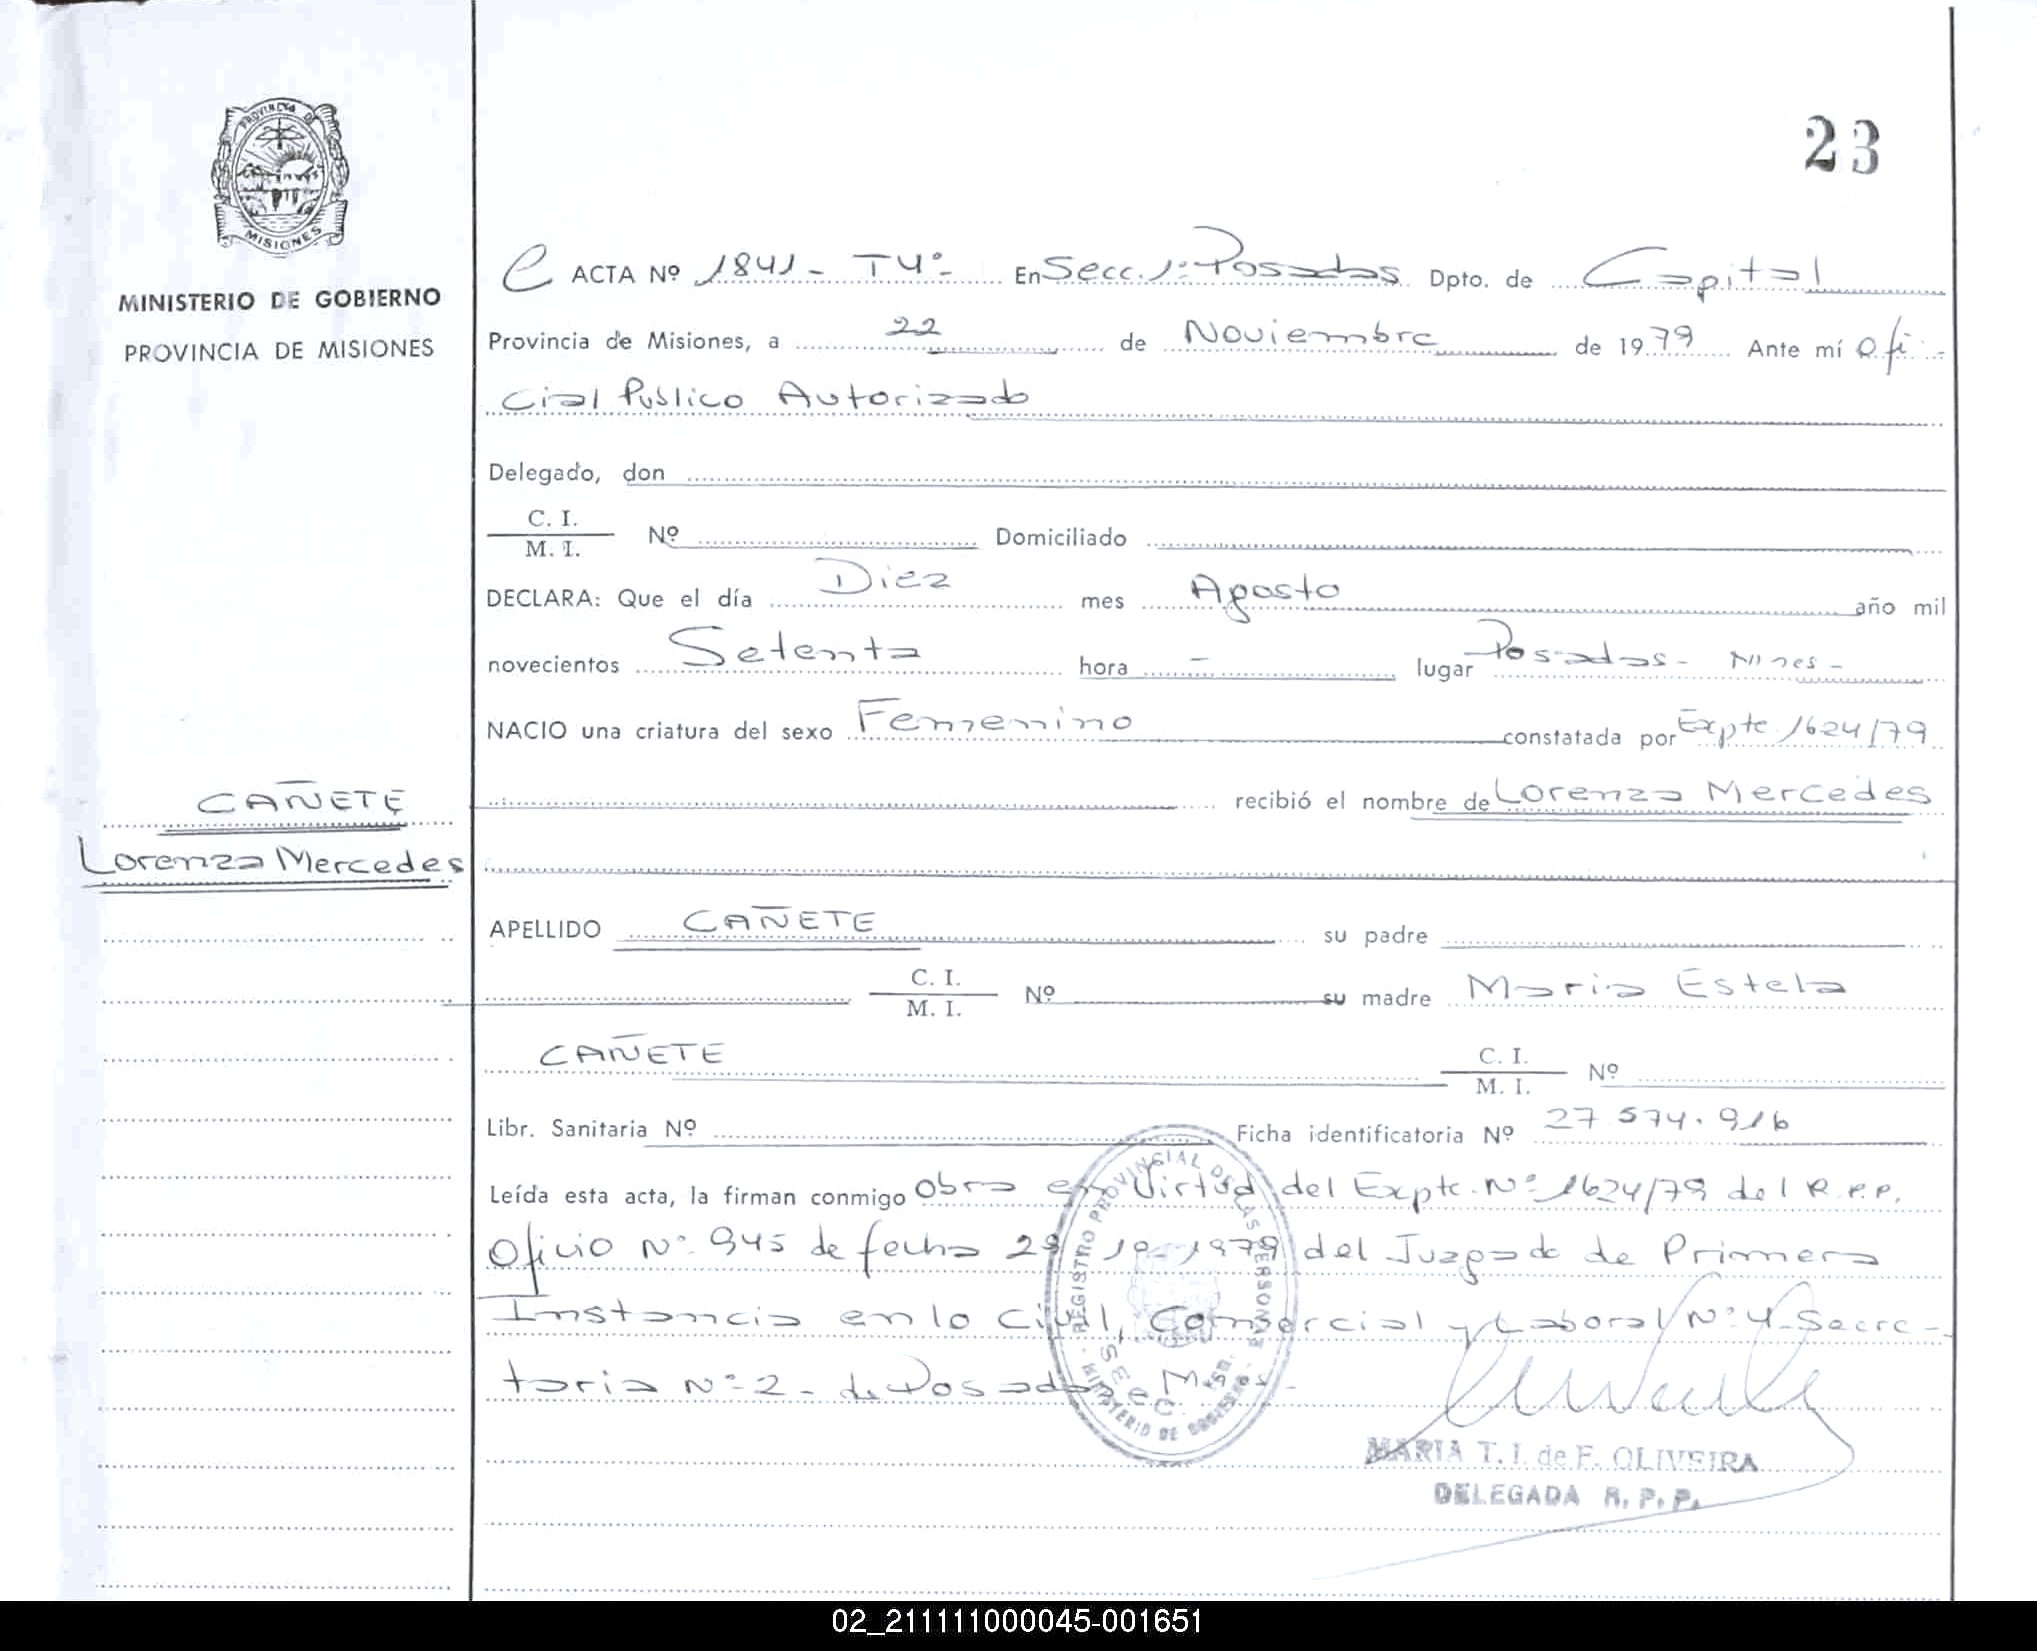 PROVINCIA DE
MISIONES
MINISTERIO DE GOBIERNO
PROVINCIA DE MISIONES
CAÑETE
Lorenza Mercedes
23
ACTA Nº 1841 - T4º - En Secc. 1º Posadas Dpto. de Capital
Provincia de Misiones, a 22 de Noviembre de 1979 Ante mí Ofi-
cial Público Autorizado
Delegado, don
C. I.
M. I. Nº Domiciliado
DECLARA: Que el día Diez mes Agosto año mil
novecientos Setenta hora - lugar Posadas - Mnes -
NACIO una criatura del sexo Femenino constatada por Expte 1624/79
recibió el nombre de Lorenza Mercedes
APELLIDO CAÑETE su padre
C. I.
M. I. Nº su madre Maria Estela
CAÑETE C. I.
M. I. Nº
Libr. Sanitaria Nº Ficha identificatoria Nº 27 574.916
Leída esta acta, la firman conmigo Obra en Virtud del Expte. Nº 1624/79 del R.P.P.
Oficio Nº 945 de fecha 29 10 1979 del Juzgado de Primera
Instancia en lo Civil, Comercial y Laboral Nº 4 - Secre-
taria Nº 2 - de Posadas Mnes -
REGISTRO PROVINCIAL DE LAS PERSONAS
MINISTERIO DE GOBIERNO
MARIA T. I. de F. OLIVEIRA
DELEGADA R. P. P.
02_211111000045-001651